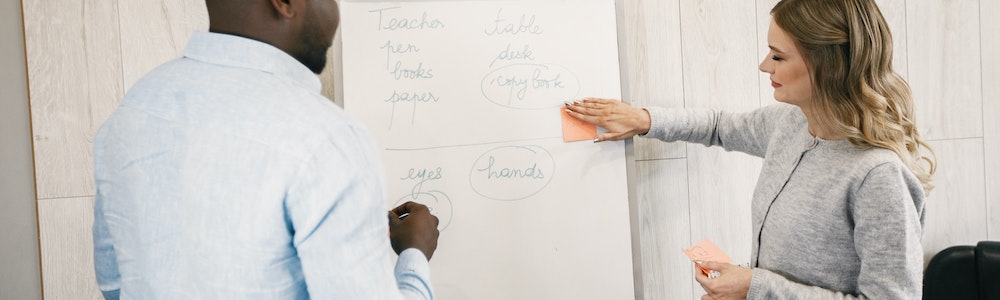 Teacher
pen
books
paper
table
desk
copybook
eyes
hands